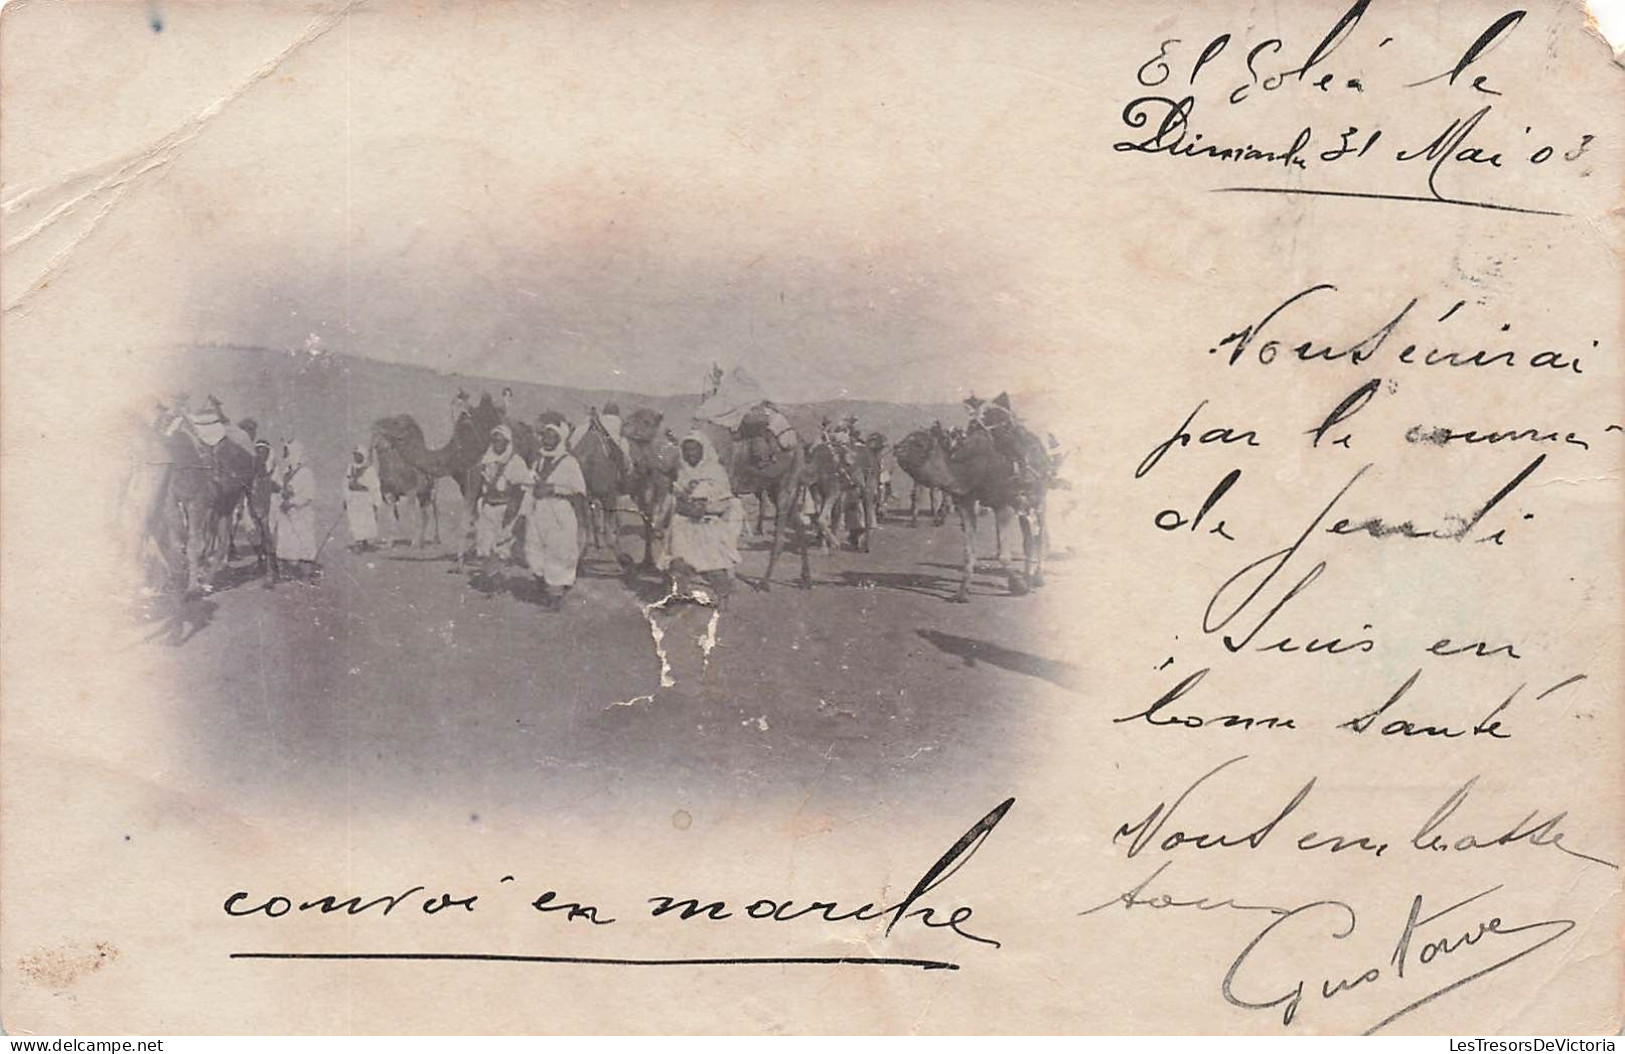 El Goléa le
Dimanche 31 Mai 03
Vous écrirai
par le courrier
de Jeudi
Suis en
bonne Santé
Vous embrasse
tous
Gustave
convoi en marche
LesTresorsDeVictoria
LesTresorsDeVictoria.com